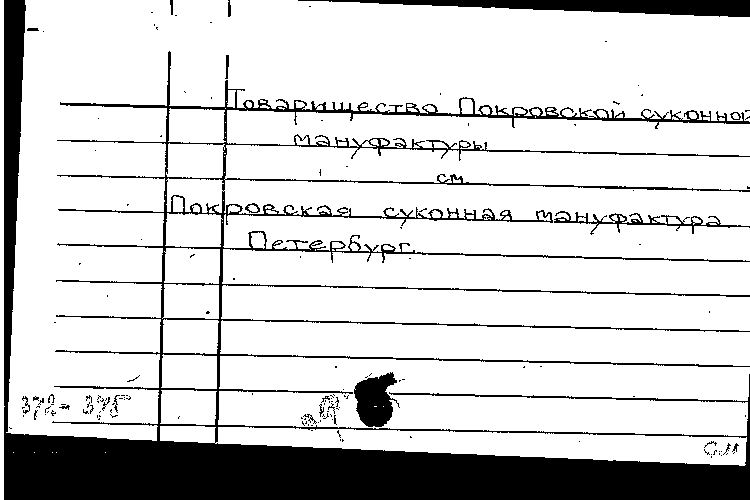 Товарищество Покровской суконной
мануфактуры
см.
Покровская суконная мануфактура.
Петербург.
372-375
см